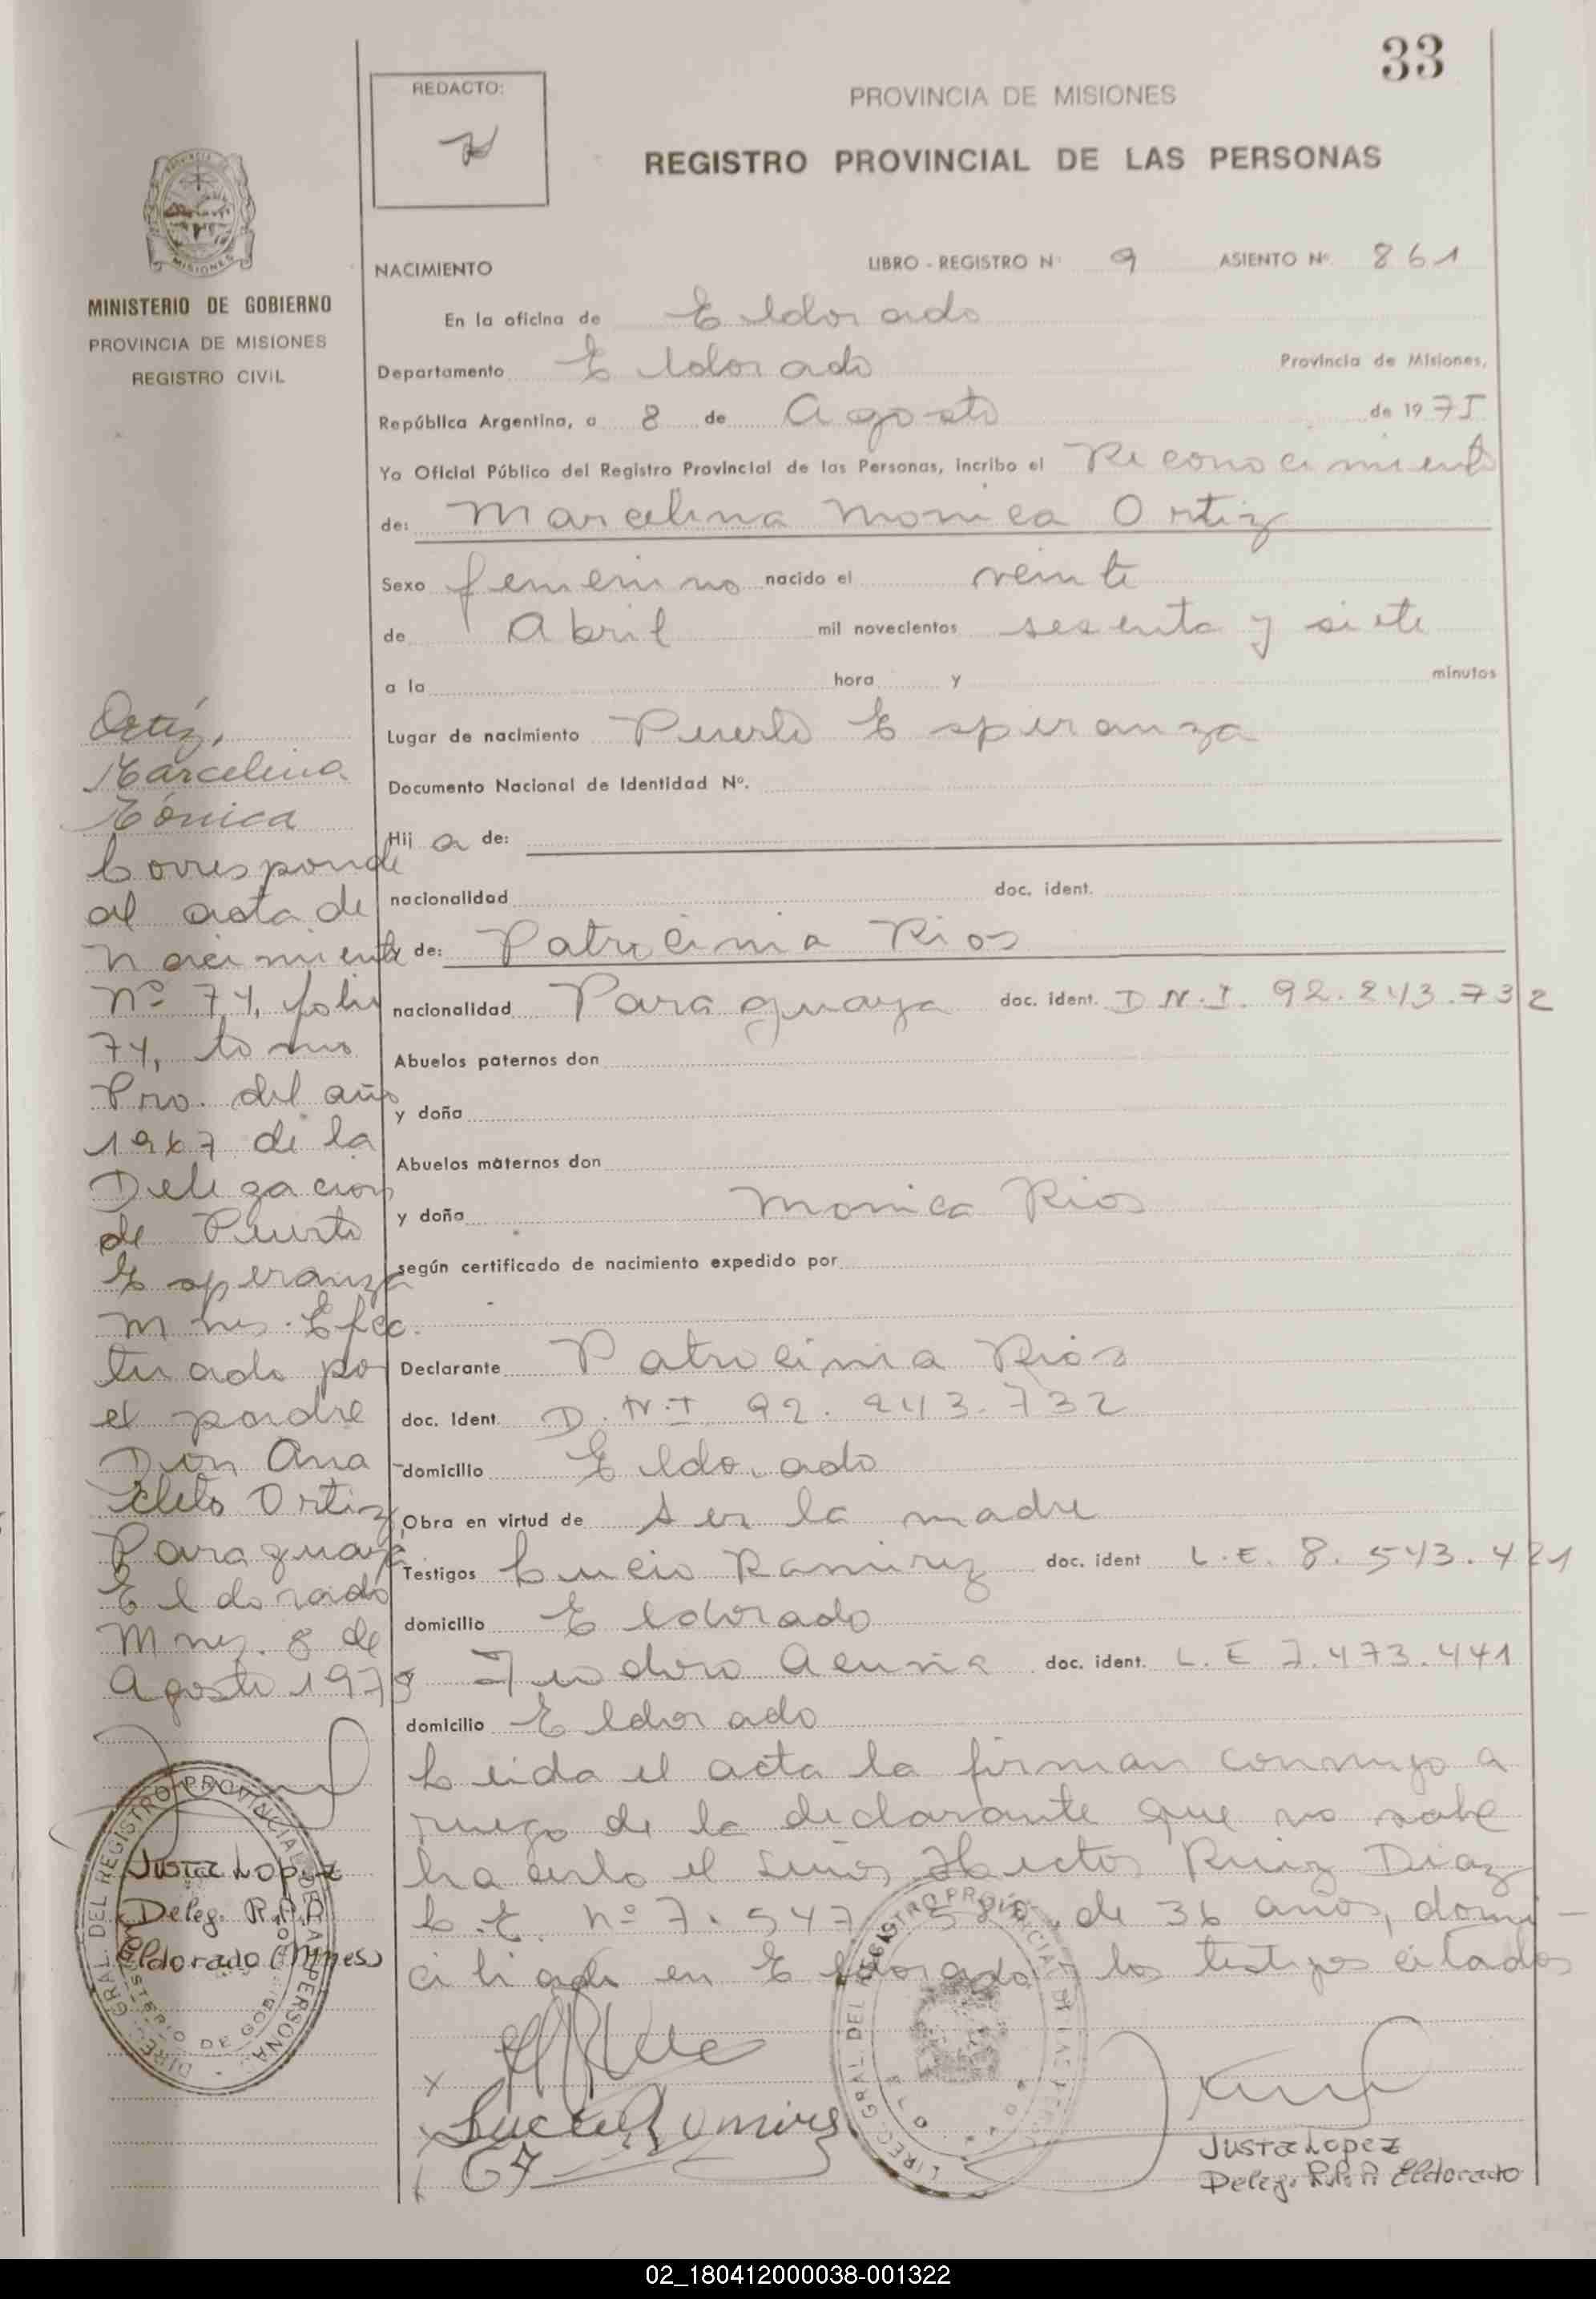 33
REDACTO:
PROVINCIA DE MISIONES
REGISTRO PROVINCIAL DE LAS PERSONAS
MISIONES
MINISTERIO DE GOBIERNO
PROVINCIA DE MISIONES
REGISTRO CIVIL
NACIMIENTO LIBRO - REGISTRO Nº 9 ASIENTO Nº 861
En la oficina de Eldorado
Departamento Eldorado Provincia de Misiones,
República Argentina, a 8 de Agosto de 1975
Yo Oficial Público del Registro Provincial de las Personas, incribo el Reconocimiento
de: Marcelina Monica Ortiz
Sexo femenino nacido el veinte
de Abril mil novecientos sesenta y siete
a la hora y minutos
Lugar de nacimiento Puerto Esperanza
Documento Nacional de Identidad Nº.
Hij a de:
nacionalidad doc. ident.
y de: Patrocinia Rios
nacionalidad Paraguaya doc. ident. D.N.I. 92.243.732
Abuelos paternos don
y doña
Abuelos maternos don
y doña Monica Rios
según certificado de nacimiento expedido por
Declarante Patrocinia Rios
doc. Ident. D.N.I. 92.243.732
domicilio Eldorado
Obra en virtud de ser la madre
Testigos Lucio Ramirez doc. ident L.E. 8.543.421
domicilio Eldorado
Teodoro Acuña doc. ident. L.E 7.473.441
domicilio Eldorado
Leida el acta la firman conmigo a
ruego de la declarante que no sabe
hacerlo el señor Hector Ruiz Diaz
L.E. nº 7.547 de 36 años, domi-
ciliado en Eldorado y los testigos citados
Ortiz,
Marcelina
Mónica
Corresponde
al acta de
Nacimiento
Nº 74, folio
74, tomo
Pro. del año
1967 de la
Delegacion
de Puerto
Esperanza
Mnes. Efec
tuado por
el padre
Don Ana
cleto Ortiz
Paraguay
Eldorado
Mnes. 8 de
Agosto 1975
Justa Lopez
Deleg. R.P.P
Eldorado (Mnes)
DIREC. GRAL. DEL REGISTRO PROVINCIAL DE LA PERSONA
MINISTERIO DE GOB.
x
x Lucio Ramirez
DIREC. GRAL. DEL REGISTRO PROVINCIAL DE LAS PERS
Justa Lopez
Deleg. R.P.P Eldorado
02_180412000038-001322